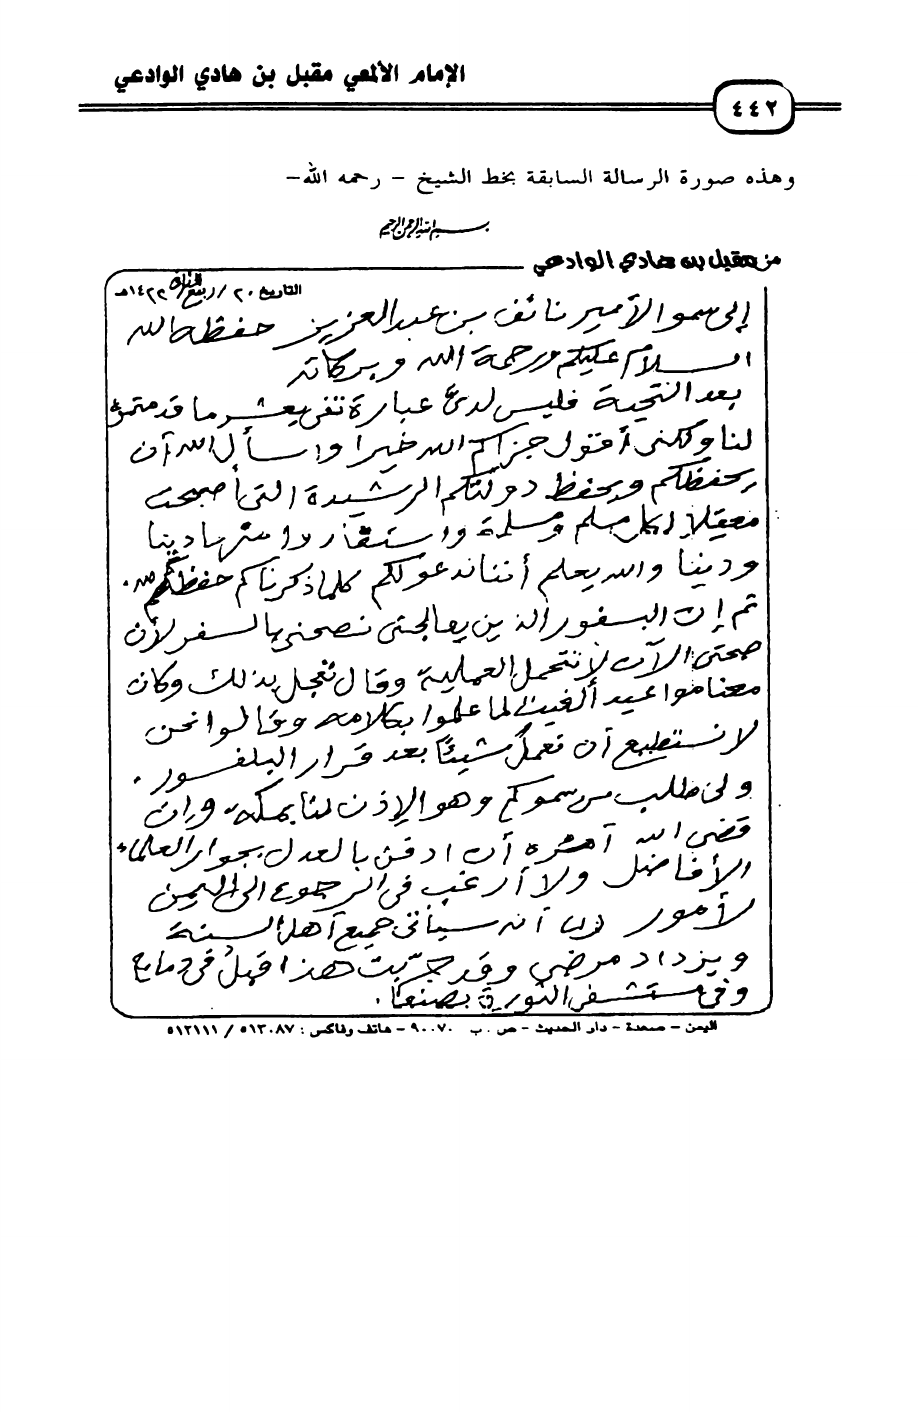 الإمام الألمعي مقبل بن هادي الوادعي
٤٤٢
وهذه صورة الرسالة السابقة بخط الشيخ – رحمه الله–
بسم الله الرحمن الرحيم
من مقبل بن هادي الوادعي
التاريخ ٢٠/ربيع الثاني/١٤٢٢هـ
إلى سمو الأمير نائف بن عبد العزيز حفظه الله
السلام عليكم ورحمة الله وبركاته
بعد التحية فليس لدي عبارة تفي بعشر ما قدمتموه
لنا ولكني أقول جزاكم الله خيرا وأسأل الله أن
يحفظكم ويحفظ دولتكم الرشيدة التي أصبحت
معقلا لكل مسلم ومسلمة واستقرارها دينا
ودنيا والله يعلم أننا ندعو لكم كلما ذكرناكم حفظكم الله.
ثم إن البسفور الذين يعالجني نصحني بالسفر لأن
صحتي الآن لا تتحمل العملية وقال نعجل بذلك وكان
معنا مواعيد ألغيت لما علموا بكلامه وقالوا نحن
لا نستطيع أن نعمل شيئا بعد قرار البلفسور.
ولي طلب من سموكم وهو الإذن لنا بمكة وإن
قضى الله أمره أن ادفن بالعدل بجوار العلماء
الأفاضل ولا أرغب في الرجوع الى اليمن
لأمور أنه سيأتي جميع أهل السنة
ويزداد مرضي وقد جربت هذا قبل في دماج
وفي مستشفى الثورة بصنعاء.
اليمن – صعدة – دار الحديث – ص . ب ٩٠٠٧٠ – هاتف وفاكس : ٥١٣٠٨٧ / ٥١٢١١١